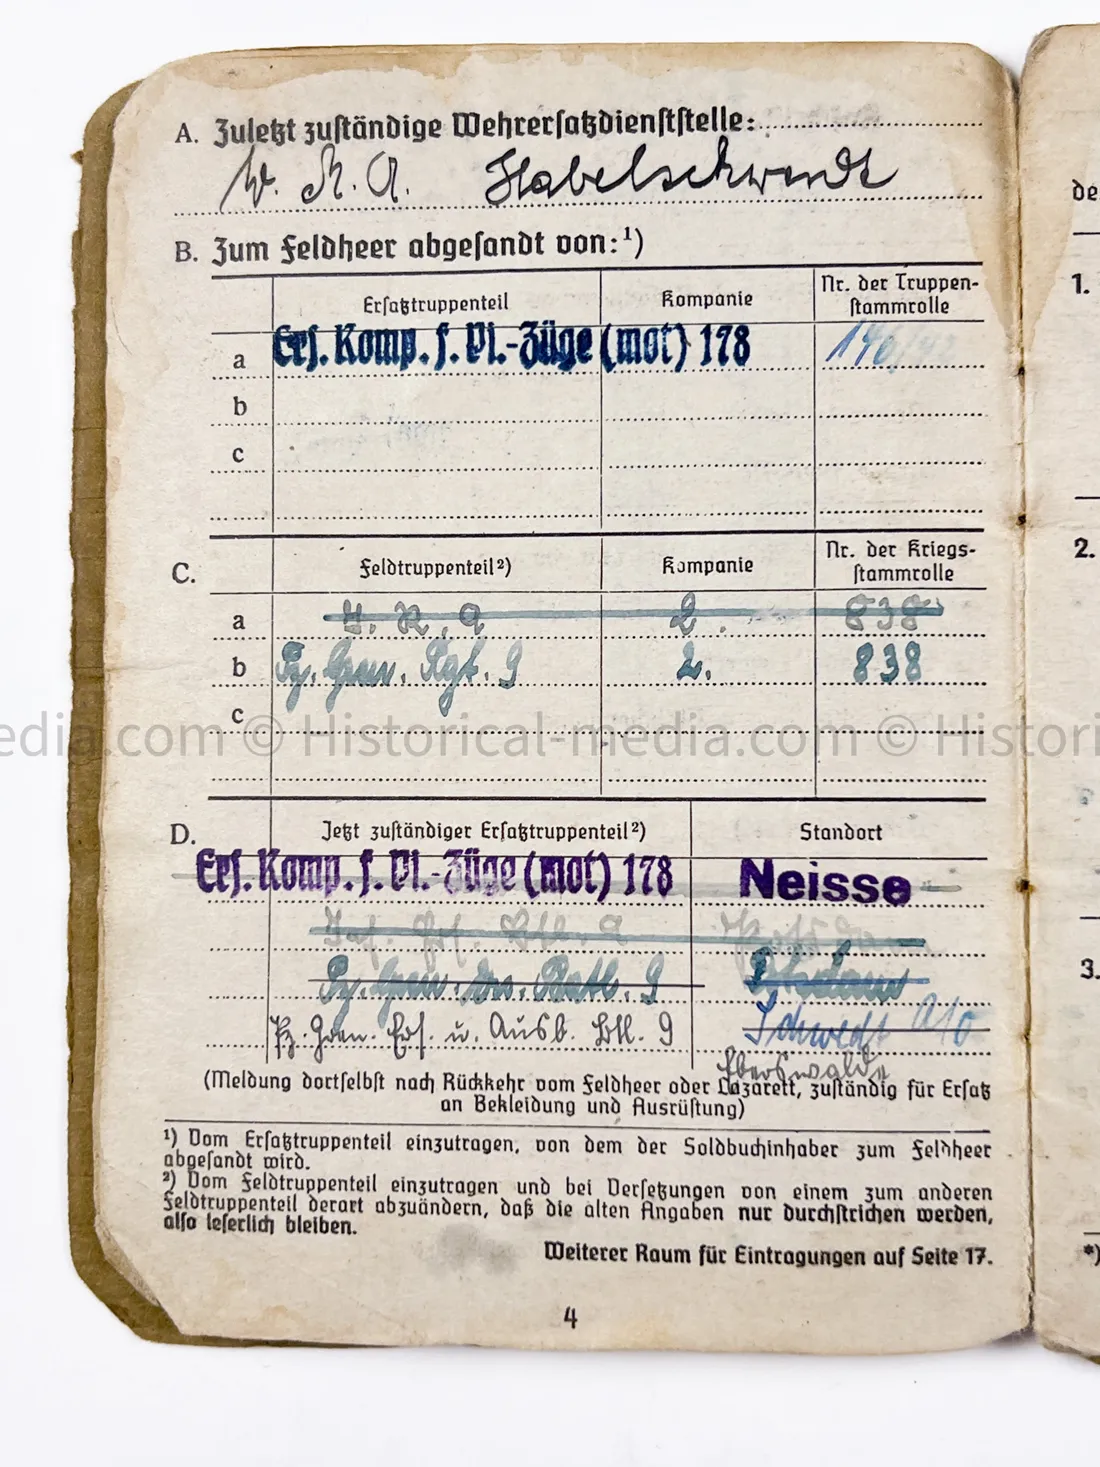 A. Zuletzt zuständige Wehrersatzdienststelle:
W. K. A. Habelschwerdt
B. Zum Feldheer abgesandt von:¹)
Ersatztruppenteil Kompanie Nr. der Truppen-
stammrolle
a Ers. Komp. f. Pi.-Züge (mot) 178
b
c
C. Feldtruppenteil²) Kompanie Nr. der Kriegs-
stammrolle
a J. R. 9 2. 838
b Pz. Gren. Rgt. 9 2. 838
c
D. Jetzt zuständiger Ersatztruppenteil²) Standort
Ers. Komp. f. Pi.-Züge (mot) 178 Neisse
Inf. Ers. Btl. 9 Potsdam
Pz. Gren. Ers. Batl. 9 Potsdam
Pz. Gren. Ers. u. Ausb. Btl. 9 Schwedt a/O
Eberswalde
(Meldung dortselbst nach Rückkehr vom Feldheer oder Lazarett, zuständig für Ersatz
an Bekleidung und Ausrüstung)
¹) Vom Ersatztruppenteil einzutragen, von dem der Soldbuchinhaber zum Feldheer
abgesandt wird.
²) Vom Feldtruppenteil einzutragen und bei Versetzungen von einem zum anderen
Feldtruppenteil derart abzuändern, daß die alten Angaben nur durchstrichen werden,
also leserlich bleiben.
Weiterer Raum für Eintragungen auf Seite 17.
4
de
1.
2.
3.
*)
edia.com © Historical-media.com © Histori